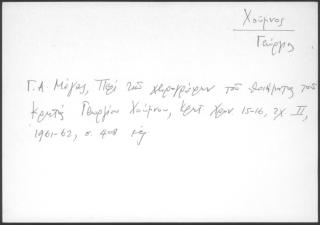 Χούμνος
Γεώργιος
Γ. Α. Μέγας, Περί των χειρογράφων του ποιήματος του
Κρητός Γεωργίου Χούμνου, Κρητ. Χρον. 15-16, τχ. II,
1961-62, σ. 408 εξ.